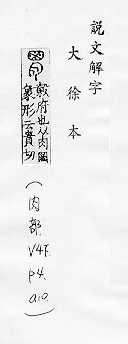 說文解字
大徐本
胃
穀府也从肉𡇒
象形云貴切
(肉部. V4下. P4. a10.)